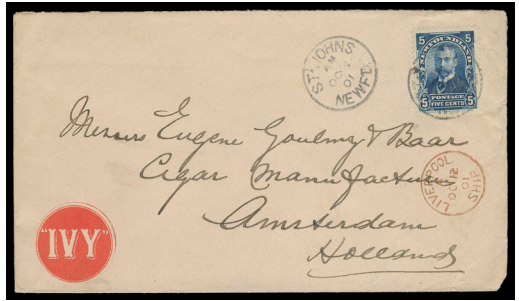 ST. JOHNS
AM
OC
01
NEWF'D
5 NEWFOUNDLAND 5
POSTAGE
5 FIVE CENTS 5
Messrs Eugene Goulmy & Baar
Cigar Manufacturers
Amsterdam
Holland
LIVERPOOL
OC 12
01
SHIP
"IVY"